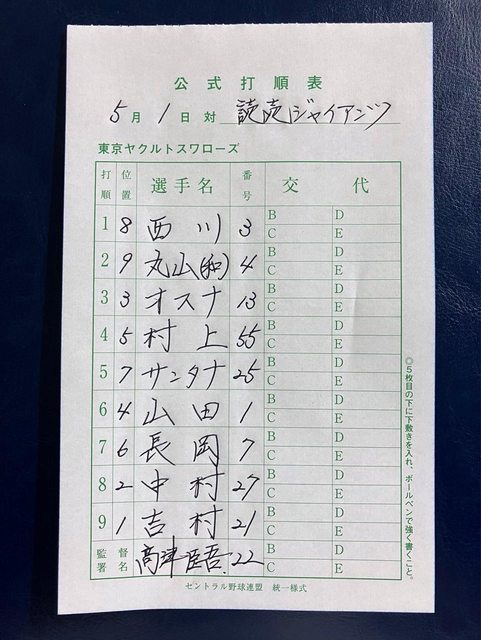 公式打順表
5月1日対 読売ジャイアンツ
東京ヤクルトスワローズ
打順 位置 選手名 番号 交代
1 8 西川 3 B D C E
2 9 丸山(和) 4 B D C E
3 3 オスナ 13 B D C E
4 5 村上 55 B D C E
5 7 サンタナ 25 B D C E
6 4 山田 1 B D C E
7 6 長岡 7 B D C E
8 2 中村 27 B D C E
9 1 吉村 21 B D C E
監督署名 高津臣吾 22 B D C E
◎5枚目の下に下敷きを入れ、ボールペンで強く書くこと。
セントラル野球連盟 統一様式